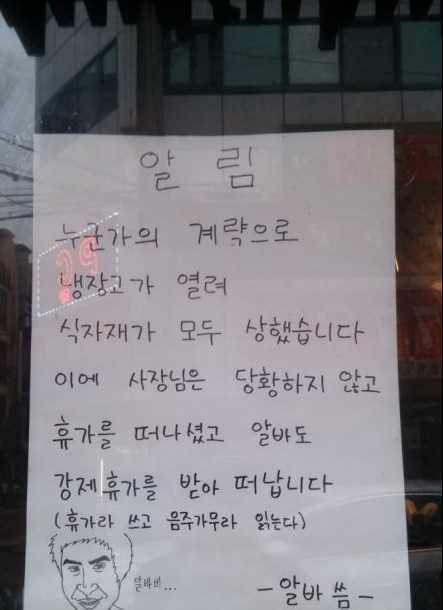 알 림
누군가의 계략으로
냉장고가 열려
식자재가 모두 상했습니다
이에 사장님은 당황하지 않고
휴가를 떠나셨고 알바도
강제휴가를 받아 떠납니다
(휴가라 쓰고 음주가무라 읽는다)
알바비...
-알바 씀-